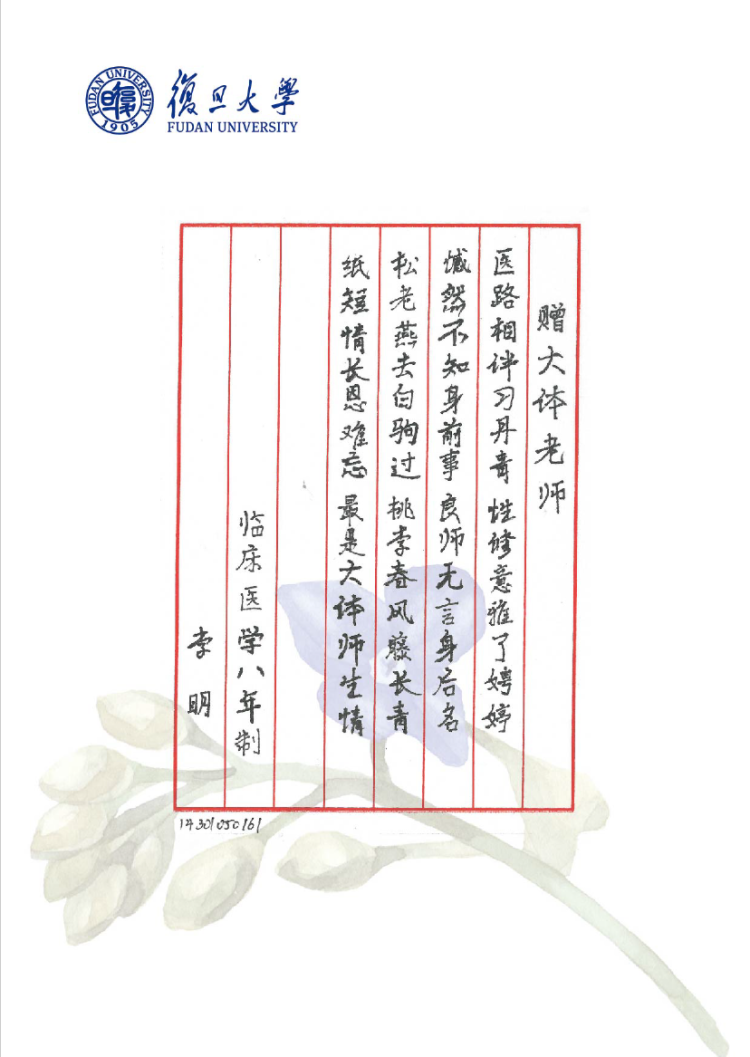 復旦大學
FUDAN UNIVERSITY
FUDAN UNIVERSITY
1905
赠大体老师
医路相伴习丹青 性修意雅了娉婷
憾然不知身前事 良师无言身后名
松老燕去白驹过 桃李春风藤长青
纸短情长恩难忘 最是大体师生情
临床医学八年制
李明
14301050161